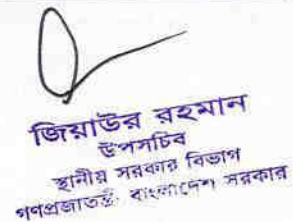 জিয়াউর রহমান
উপসচিব
স্থানীয় সরকার বিভাগ
গণপ্রজাতন্ত্রী বাংলাদেশ সরকার